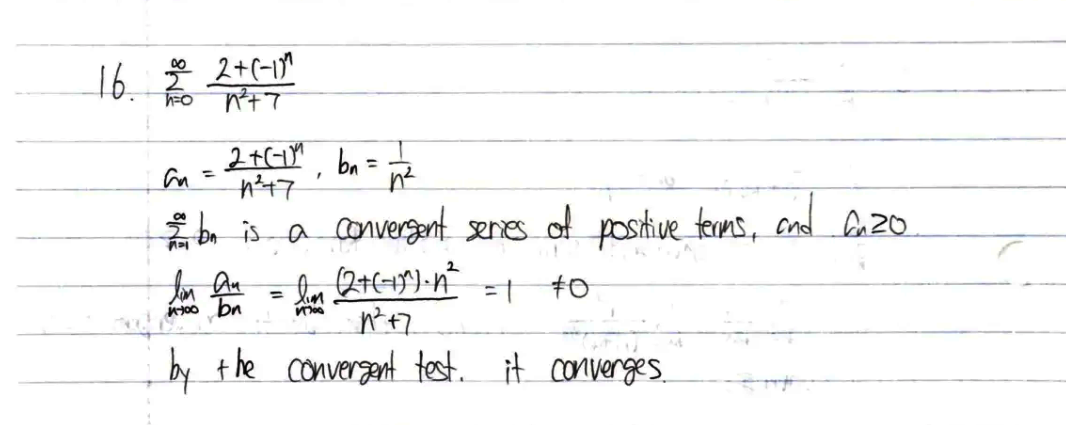 16. ∑_{n=0}^{∞} \frac{2+(-1)^n}{n^2+7}
a_n = \frac{2+(-1)^n}{n^2+7}, b_n = \frac{1}{n^2}
∑_{n=1}^{∞} b_n is a convergent series of positive terms, and a_n ≥ 0
lim_{n→∞} \frac{a_n}{b_n} = lim_{n→∞} \frac{(2+(-1)^n)·n^2}{n^2+7} = 1 ≠ 0
by the convergent test. it converges.